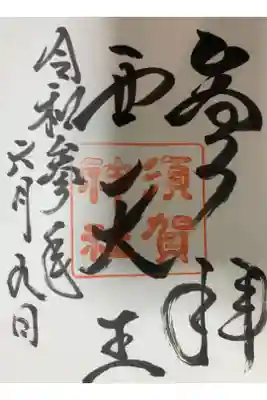 参拝
西大王
須賀
神社
令和参年
六月九日